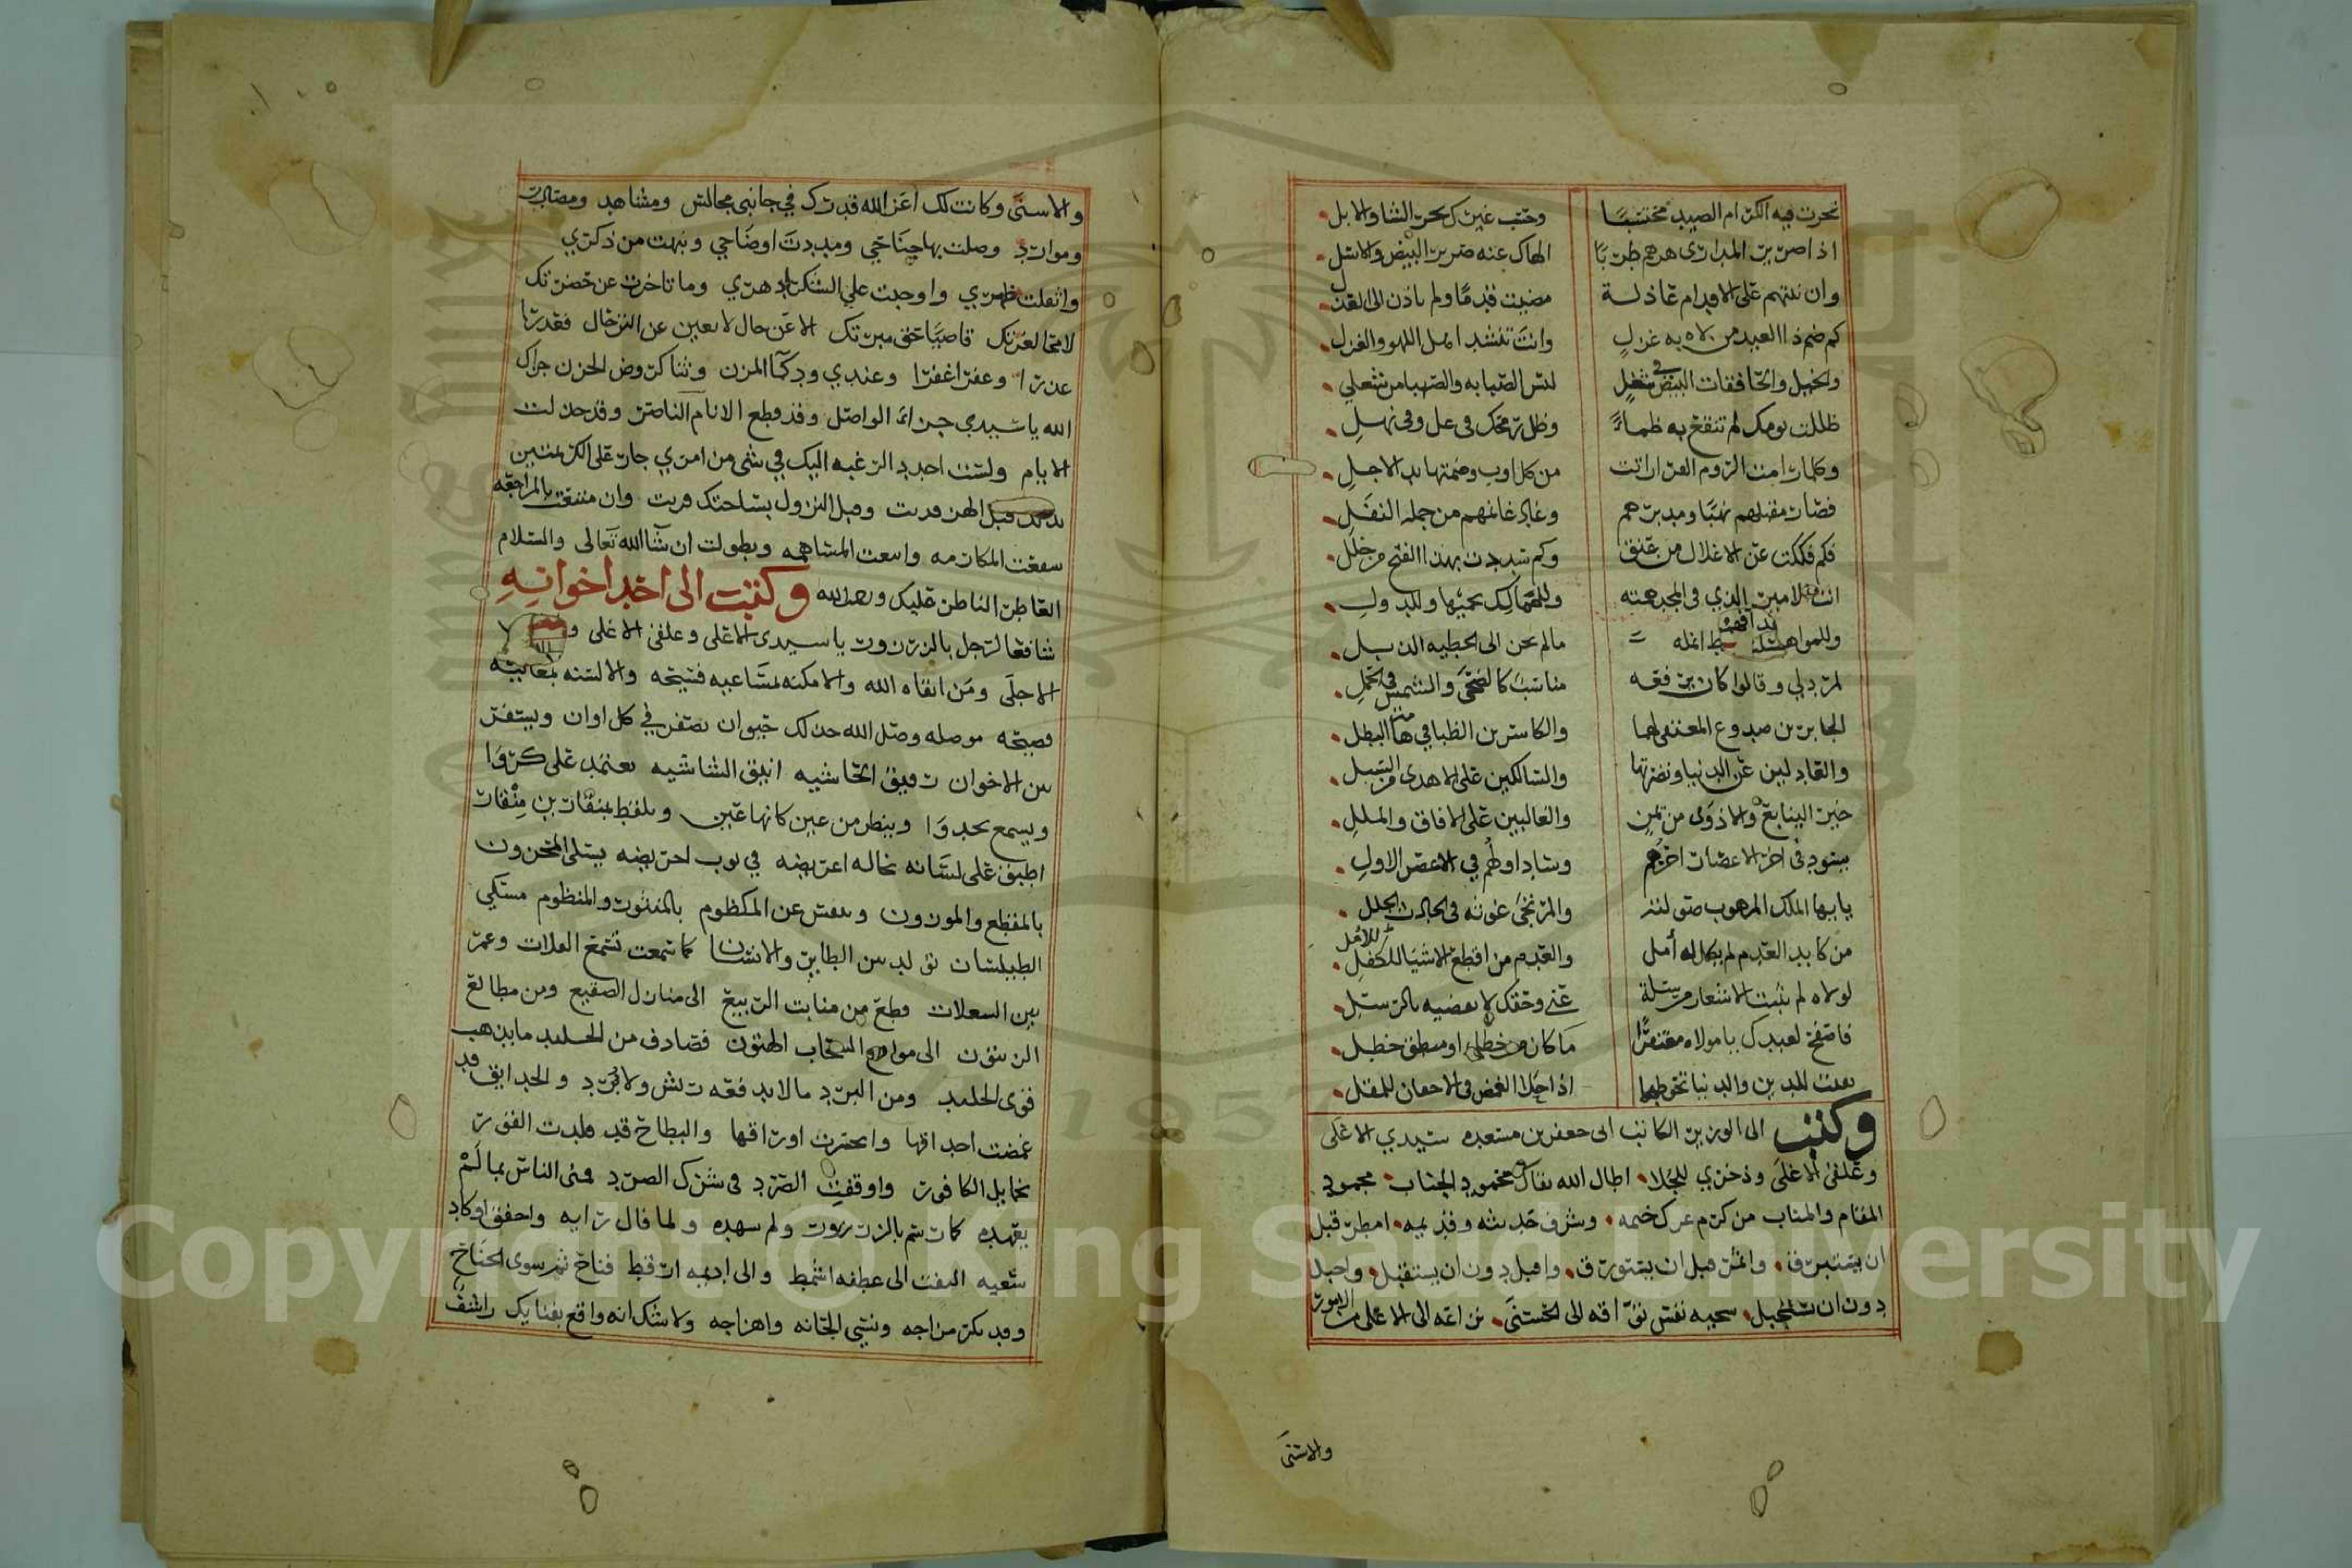 نحرت فيه الكرام الصيد محتسبا وحسب غيرك نحر الشا والابل
اذا صرير المدارى هزهم طربا الهاك عنه صرير البيض والاسل
وان نهتهم على الاقدام عاذلة مضيت قدما ولم تاذن الى العذل
كم ضم ذا العيد من لاه به غزل وانت تنشد اهل اللهو والغزل
والخيل والخافقات البيض في شغل ليس الصبابه والصهبا من شغلي
ظللت يومك لم تنقع به ظماء وظل رمحك في عل وفي نهل
وكلما رامت الروم الفرار اتت من كل اوب وضمتها يد الاجل
فصار مقبلهم نهبا ومدبرهم وعاد غانمهم من جملة النفل
فكم فككت عن الاغلال من عنق وكم سددت بهذا الفتح من خلل
انت الامير الذي في المجد همته وللممالك يحميها وللدول
وللمواهب انمله مالم يحن الى الخطيه الذبل
وقالوا كان مناسبا كالضحى والشمس في الحمل
الجابرين صدوع المعتفي لهما والكاسرين الظبا في هامة البطل
والعادلين عن الدنيا ونضرتها والسالكين على الاهدى من السبل
حير التبابع والاذوى من يمن والغالبين على الافاق والملل
يسود في اخر الاعصار اخرهم وساد اولهم في الاعصر الاول
يا ايها الملك المرهوب صولته والمرتجى غوثه في الحادث الجلل
من كابد العدم لم يكمل له أمل والعدم من اقطع الاشيا للامل
لولاه لم تثبت الاشعار مرسلة عني وحقك لا يقضيه بالرسل
فاصفح لعبدك يا مولاه مغتفرا ما كان من خطل او منطق خطل
بقيت للدين والدنيا تحوطهما اذا حلا الغمض في الاجفان للمقل
وكتب الى الوزير الكاتب ابي جعفر بن مسعده سيدي الاعلى
وعلقي الاغلى وذخري للجلا اطال الله بقاك محمود الجناب محمود
المقام والمناب من كرم عرك خيمه وشرف حديثه وقديمه امطر قبل
ان يستبرق واثمر قبل ان يستورق واقبل دون ان يستقبل
دون ان سجيه نفس تواقه الى الحسنى نزاعه الى الاعلى من الامور
والاسنى
والاسنى وكانت لك اعز الله قدرك في جانبي مجالس ومشاهد ومصادر
وموارد وصلت بها جناحي ومددت اوضاحي ونبهت من ذكري
واثقلت ظهري واوجبت علي الشكر لدهري وما تاخرت عن حضرتك
لامحا لغرتك قاضيا حق مبرتك الا عن حال لا يعين عن الترحال فعذرا
عذرا وغفرا غفرا وعندي ود كما المزن وثنا كروض الحزن جزاك
الله يا سيدي جزاء الواصل وقد قطع الانام الناصر وقد خذلت
الايام ولست اجدد الرغبه اليك في شي من امري جار على الكريمتين
قبل وقبل النزول بساحتك قريت وان متعت بالمراجعه
شفعت المكارمه واتبعت المساهمه وتطولت ان شا الله تعالى والسلام
العاطر الناطر عليك ورحمة الله وكتب الى احد اخوانه
شافعا لرجل بالزرزور يا سيدي الاعلى وعلقي الاغلى
الاجلى ومن ابقاه الله والامكنه بمساعيه فسيحه والالسنه بمعاليه
فصيحه موصله وصل الله جذلك حيوان يصفر في كل اوان ويسفر
بين الاخوان رقيق الحاشيه انيق الشاشيه يعتمد على كروا
ويسمع بجدوا وينظر من عين كانها عين ويلقط بمنقار من قار
اطبق على لسانه كانه اغريضه في ثوب احريضه يسلي المحزون
بالمقطع والموزون وينفس عن المكظوم بالمنثور والمنظوم مسكي
الطيلسان تولد بين الطاير والانسان كما سمعت بسمع الفلاة وعمر
بين السعلاة قطع من منابت الربيع الى منازل الصقيع ومن مطالع
الزيتون الى مواقع السحاب الهتون فصادف من الجليد ما يذهب
قوى الجليد ومن البرد ما لا يدفعه ريش ولا برد والحدايق قد
غمضت احداقها وانحسرت اوراقها والبطاح قد قيدت الفور
بحبايل الكافور واوقفت الصرد في شرك الصرد فمنى الناس بما لم
يعهده كما وسم بالزرزور ولم يشهده ولما فال رايه واخفق او كاد
سعيه التفت الى عطفه اشمط والى اديمه ارقط فناح ثم سوى الجناح
وقد نكر مزاجه ونسي الحانه واهزاجه ولا شك انه واقع بفنايك راشف